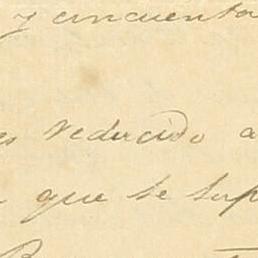 y cincuenta
reducido a
que se sup